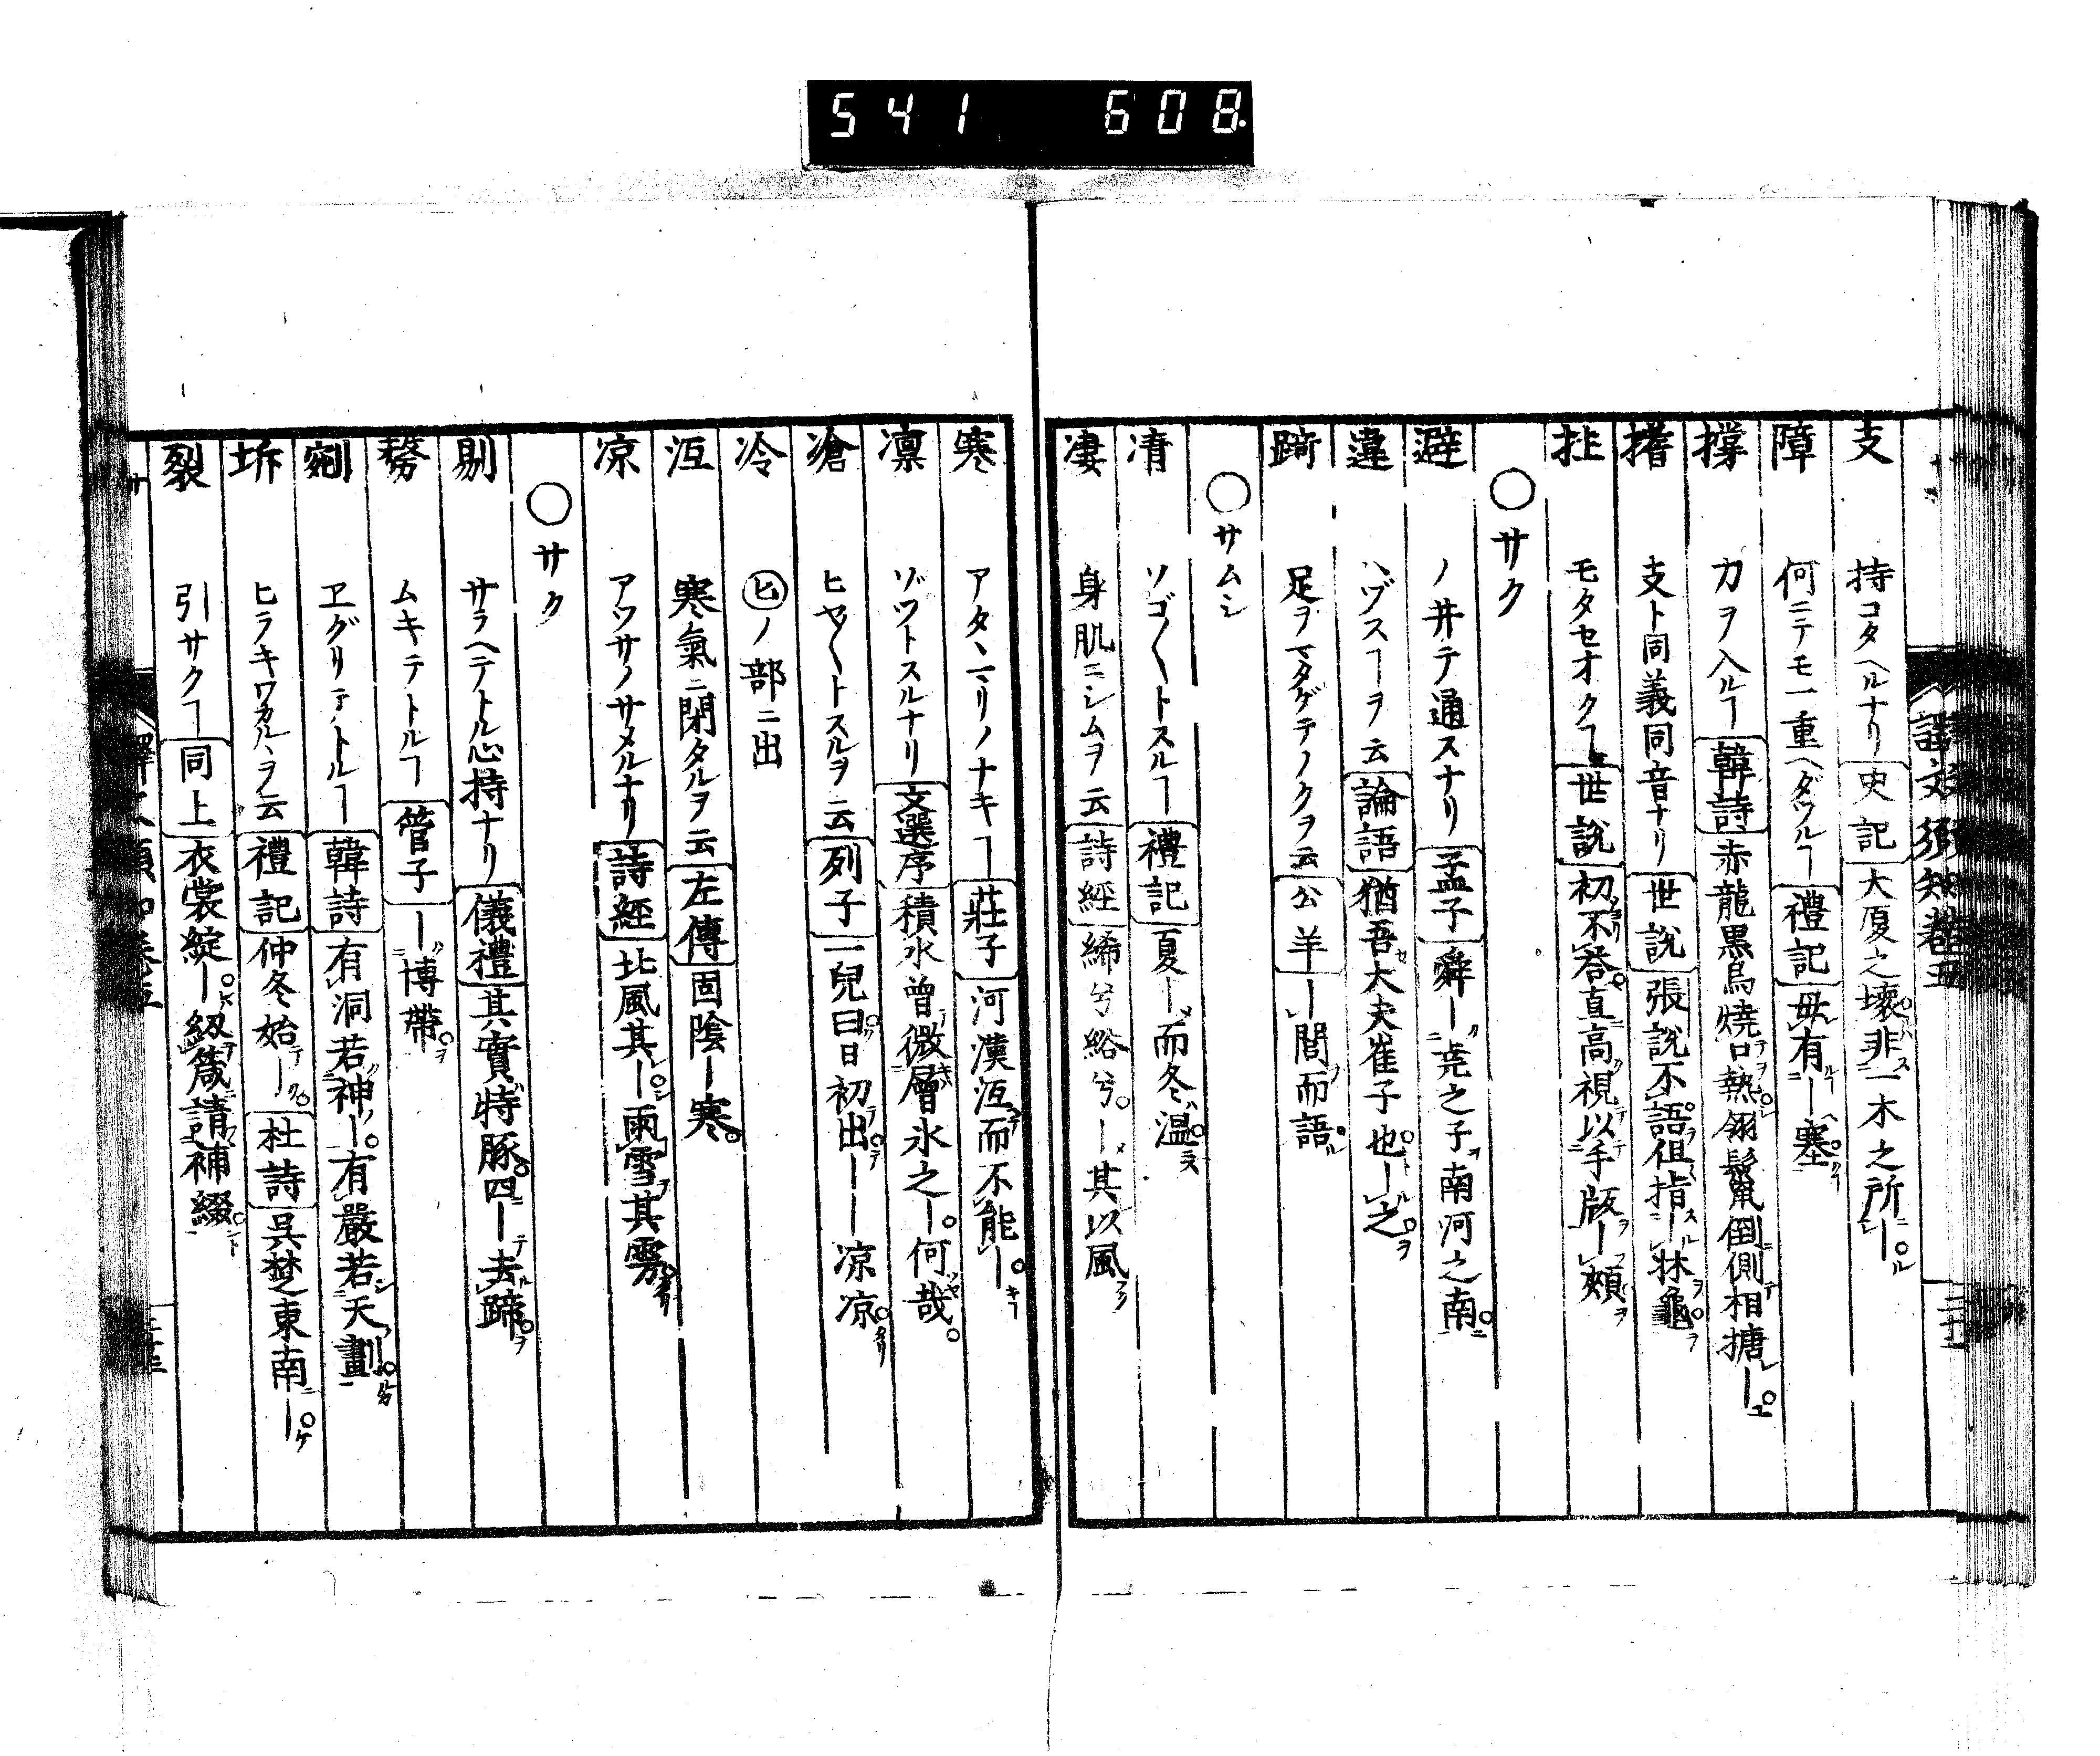 541 608
支 持コタヘルナリ 史記 大厦之壞非一木之所ー
障 何ニテモ一重ヘダツルヿ 禮記 毋有ー塞
撐 力ヲ入ルヿ 韓詩 赤龍黒烏燒口熱翎鬣倒側相搪ー
支ト同義同音ナリ 世説 張説不語但指ー牀龜
拄 モタセオクヿ 世説 初不答直高視以手版ー頰
○サク
避 ノ井テ通スナリ 孟子 舜ー尭之子南河之南
違 ハヅスヿヲ云 論語 猶吾大夫崔子也ー之
踦 足ヲマタゲテノクヲ云 公羊 ー閭而語
○サムシ
凊 ソゴ〱トスルヿ 禮記 夏ー而冬温
凄 身肌ニシムヲ云 詩經 絺兮綌兮ー其以風
寒 アタヽマリノナキヿ 莊子 河漢沍而不能ー
凛 ゾツトスルナリ 文選序 積水曽微層氷之ー何哉
滄 ヒヤ〱トスルヲ云 列子 一兒曰日初出ーー凉凉
冷 ヒノ部ニ出
沍 寒氣ニ閉タルヲ云 左傳 固陰ー寒
凉 アツサノサメルナリ 詩經 北風其ー雨雪其雱
○サク
剔 サラヘテトル心持ナリ 儀禮 其實特豚四ー去蹄
ムキテトルヿ 管子 ー博帶
剜 ヱグリテトルヿ 韓詩 有洞若神ー有嚴若天劃
坼 ヒラキワカルヽヲ云 禮記 仲冬始ー 杜詩 呉楚東南ー
裂 引サクヿ 同上 衣裳綻ー紉箴請補綴